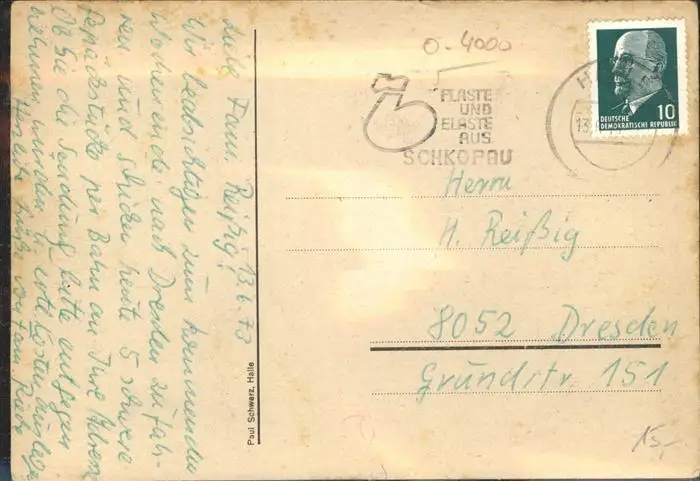 Liebe Fam. Reißig! 13.6.73
Wir beabsichtigen zum kommenden
Wochenende nach Dresden zu fah-
ren und schicken heute 5 schwere
Gepäckstücke per Bahn an Ihre Adresse.
Ob Sie die Sendung bitte entgegen
nehmen würden u. evtl. Kosten auslegen
Herzliche Grüße von Fam.
Paul Schwarz, Halle
O-4000
PLASTE
UND
ELASTE
AUS
SCHKOPAU
DEUTSCHE
DEMOKRATISCHE REPUBLIK
10
H
13.
Herrn
H. Reißig
8052 Dresden
Grundstr. 151
15,-